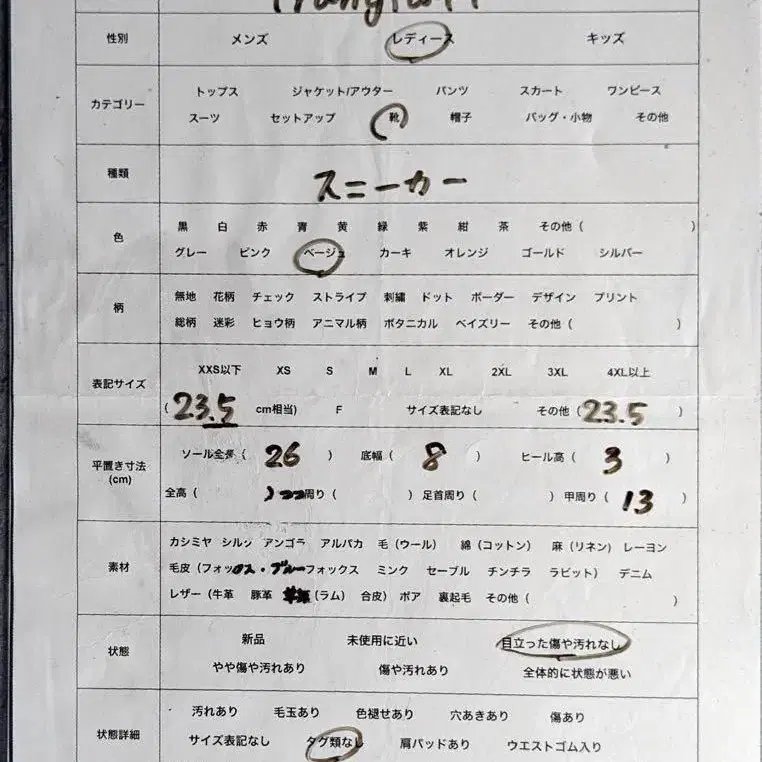 性別 メンズ レディース キッズ
カテゴリー トップス ジャケット/アウター パンツ スカート ワンピース
スーツ セットアップ 靴 帽子 バッグ・小物 その他
種類 スニーカー
色 黒 白 赤 青 黄 緑 紫 紺 茶 その他 ( )
グレー ピンク ベージュ カーキ オレンジ ゴールド シルバー
柄 無地 花柄 チェック ストライプ 刺繍 ドット ボーダー デザイン プリント
総柄 迷彩 ヒョウ柄 アニマル柄 ボタニカル ペイズリー その他 ( )
表記サイズ XXS以下 XS S M L XL 2XL 3XL 4XL以上
( 23.5 cm相当) F サイズ表記なし その他 ( 23.5 )
平置き寸法 (cm) ソール全長 ( 26 ) 底幅 ( 8 ) ヒール高 ( 3 )
全高 ( ) ココ周り ( ) 足首周り ( ) 甲周り ( 13 )
素材 カシミヤ シルク アンゴラ アルパカ 毛 (ウール) 綿 (コットン) 麻 (リネン) レーヨン
毛皮 (フォックス・ブルーフォックス ミンク セーブル チンチラ ラビット) デニム
レザー (牛革 豚革 (ラム) 合皮) ボア 裏起毛 その他 ( )
状態 新品 未使用に近い 目立った傷や汚れなし
やや傷や汚れあり 傷や汚れあり 全体的に状態が悪い
状態詳細 汚れあり 毛玉あり 色褪せあり 穴あきあり 傷あり
サイズ表記なし タグ類なし 肩パッドあり ウエストゴム入り